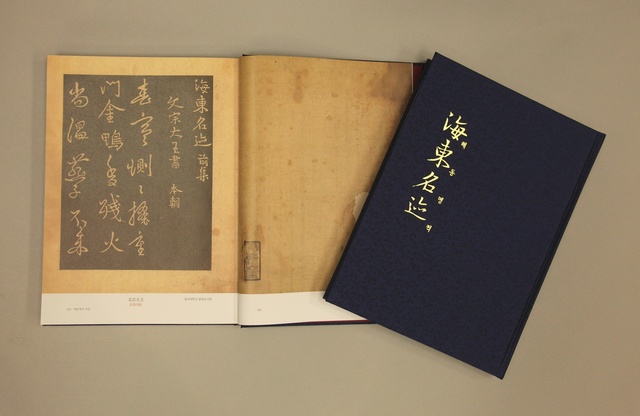 海東名迹 前集
文宗大王書 本朝
春寒惻〻掩重
门金鴨香殘火
尚温燕子不来
海東名迹
해동명적